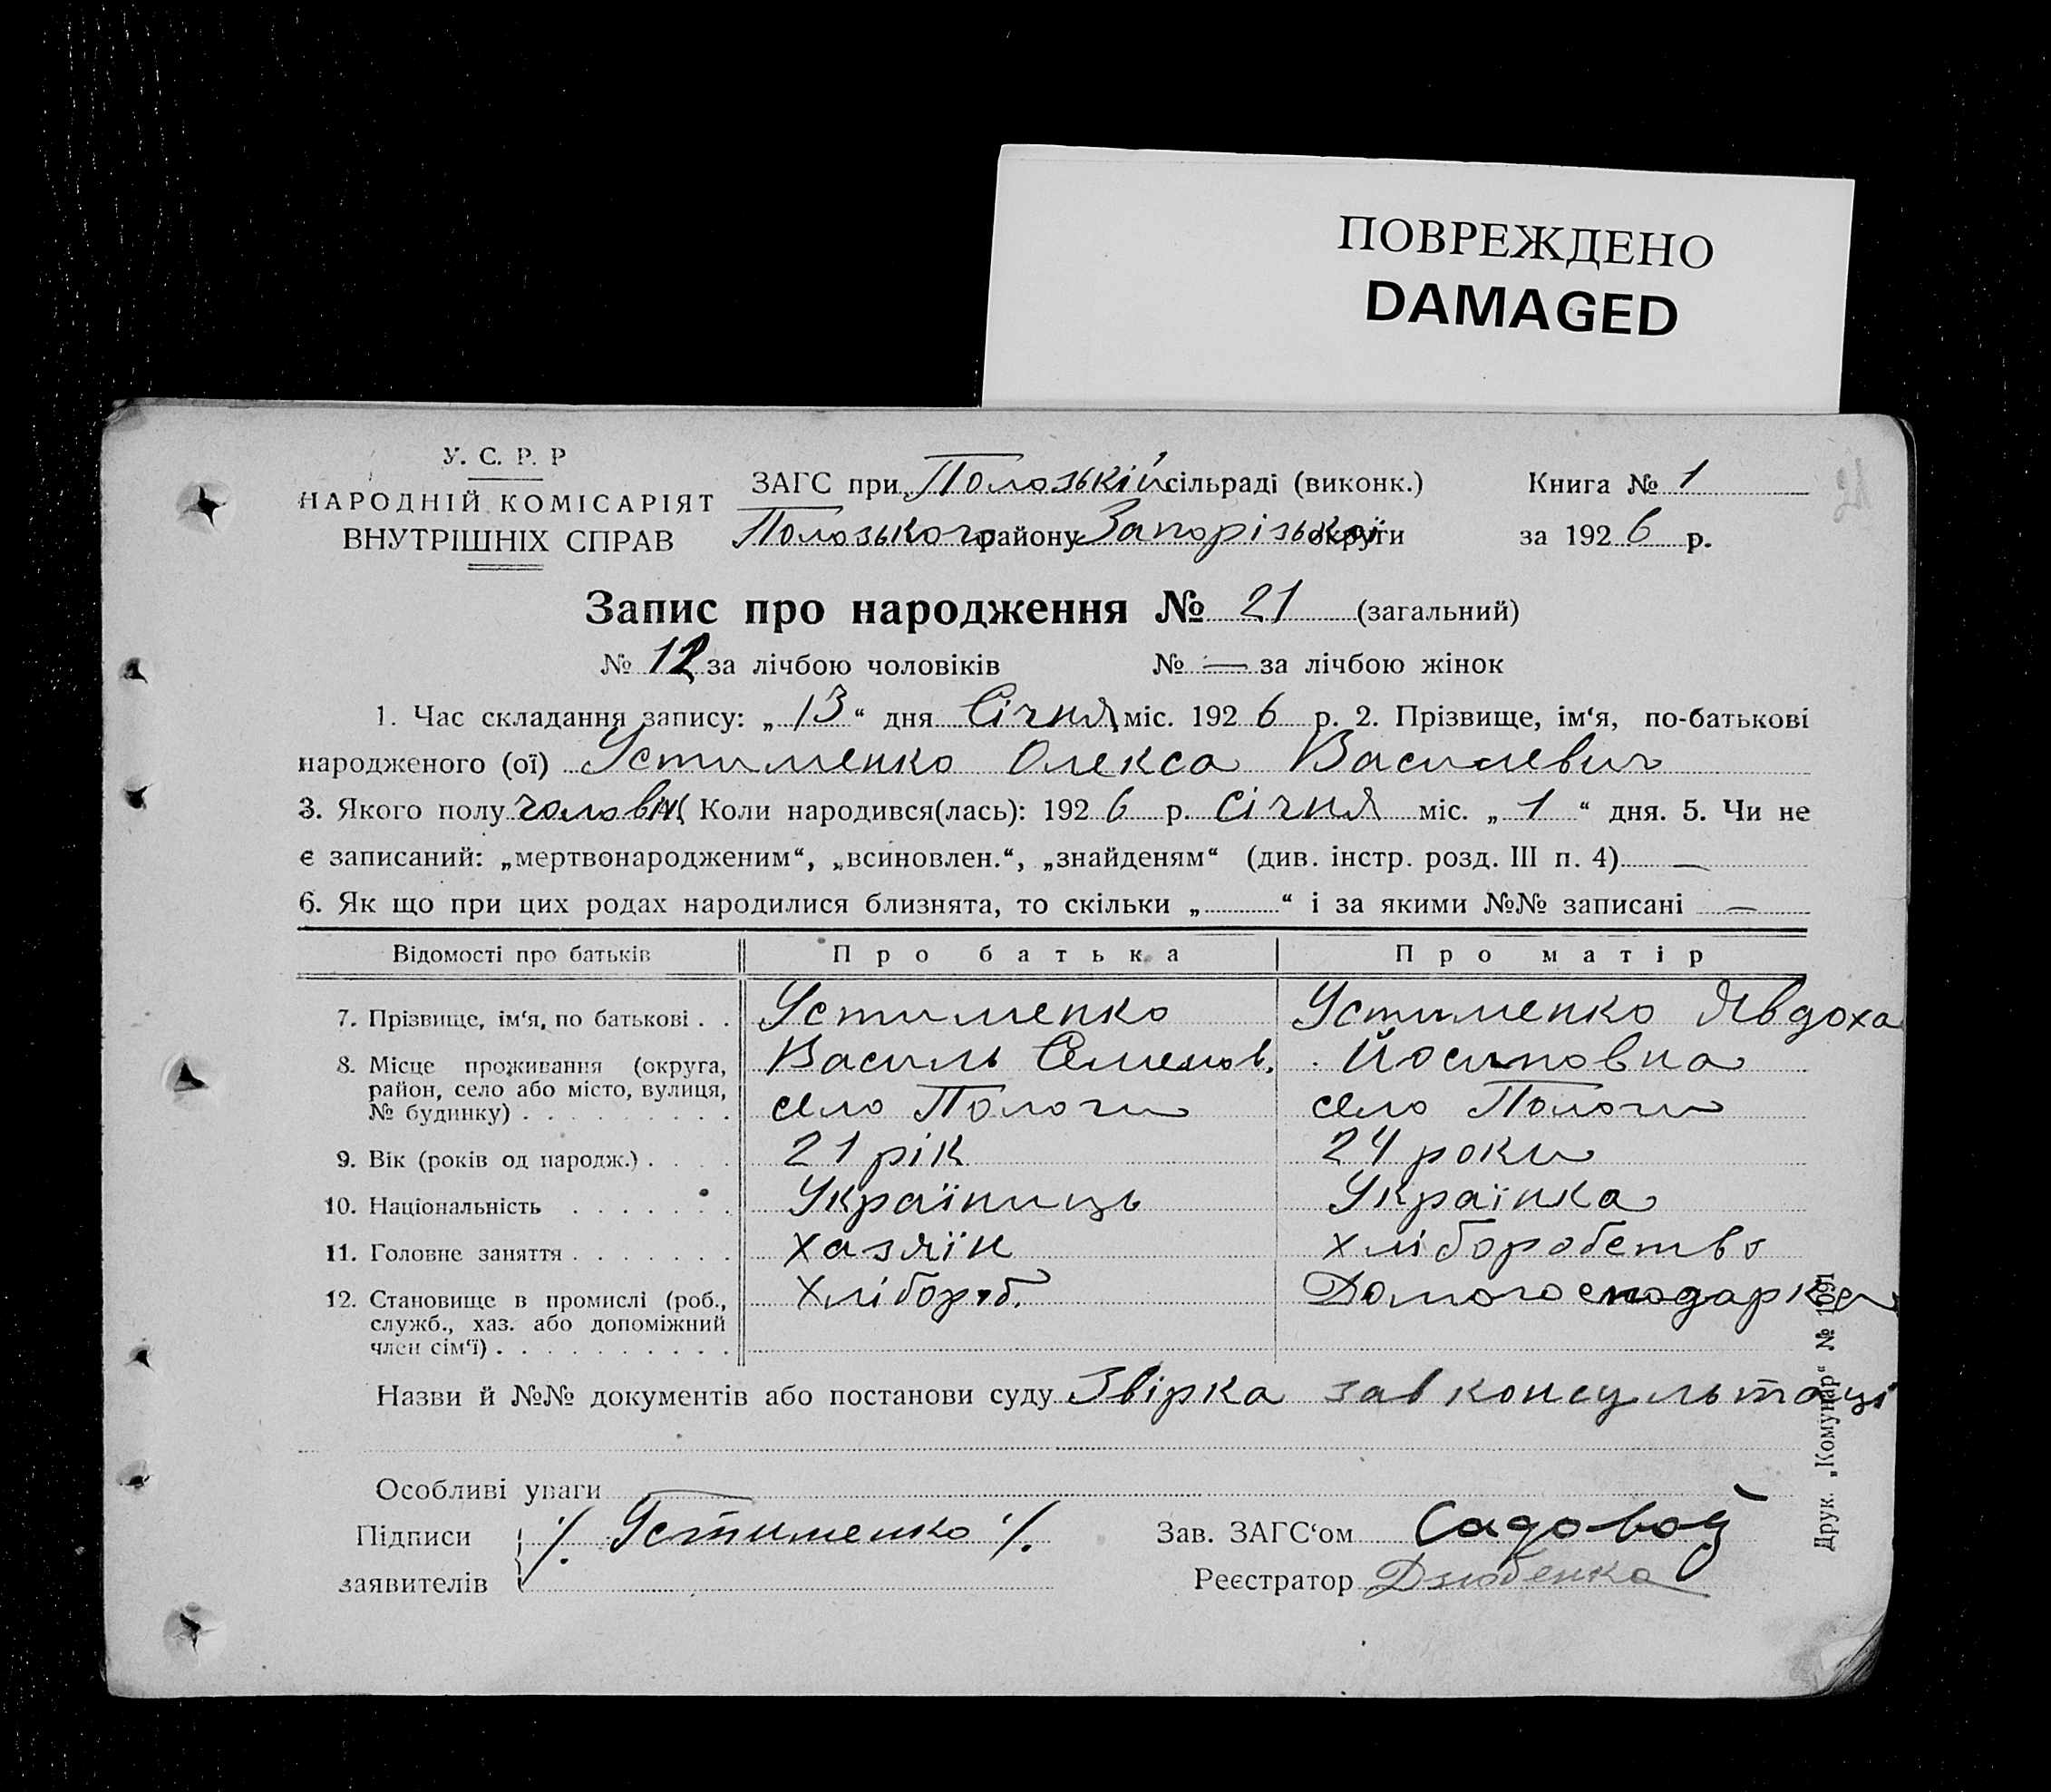 ПОВРЕЖДЕНО
DAMAGED
21
У. С. Р. Р
НАРОДНІЙ КОМІСАРІЯТ
ВНУТРІШНІХ СПРАВ
ЗАГС при Полозькій сільраді (виконк.)
Полозького району Запорізької округи
Книга № 1
за 1926 р.
Запис про народження № 21 (загальний)
№ 12 за лічбою чоловіків № — за лічбою жінок
1. Час складання запису: „13“ дня Січня міс. 1926 р. 2. Прізвище, ім‘я, по-батькові
народженого (ої) Устименко Олекса Василевич
3. Якого полу чоловіч Коли народився(лась): 1926 р. Січня міс. „1“ дня. 5. Чи не
є записаний: „мертвонародженим“, „всиновлен.“, „знайденям“ (див. інстр. розд. III п. 4) —
6. Як що при цих родах народилися близнята, то скільки „......“ і за якими №№ записані —
Відомості про батьків Про батька Про матір
7. Прізвище, ім‘я, по батькові . . Устименко Устименко Явдоха
8. Місце проживання (округа, Василь Семенов. Йосиповна
район, село або місто, вулиця,
№ будинку) . . . . . . . . . село Пологи село Пологи
9. Вік (років од народж.) . . . . 21 рік 24 роки
10. Національність . . . . . . . Україниць Українка
11. Головне заняття . . . . . . . хазяїн хліборобство
12. Становище в промислі (роб., хлібороб. Домогосподарка
служб., хаз. або допоміжний
член сім‘ї) . . . . . . . . . .
Назви й №№ документів або постанови суду Звірка зав консультаці
Особливі уваги
Підписи ·/. Устименко ·/. Зав. ЗАГС‘ом Садовой
заявителів Реєстратор Дзюбенка
Друк. „Комунар“ № 1091